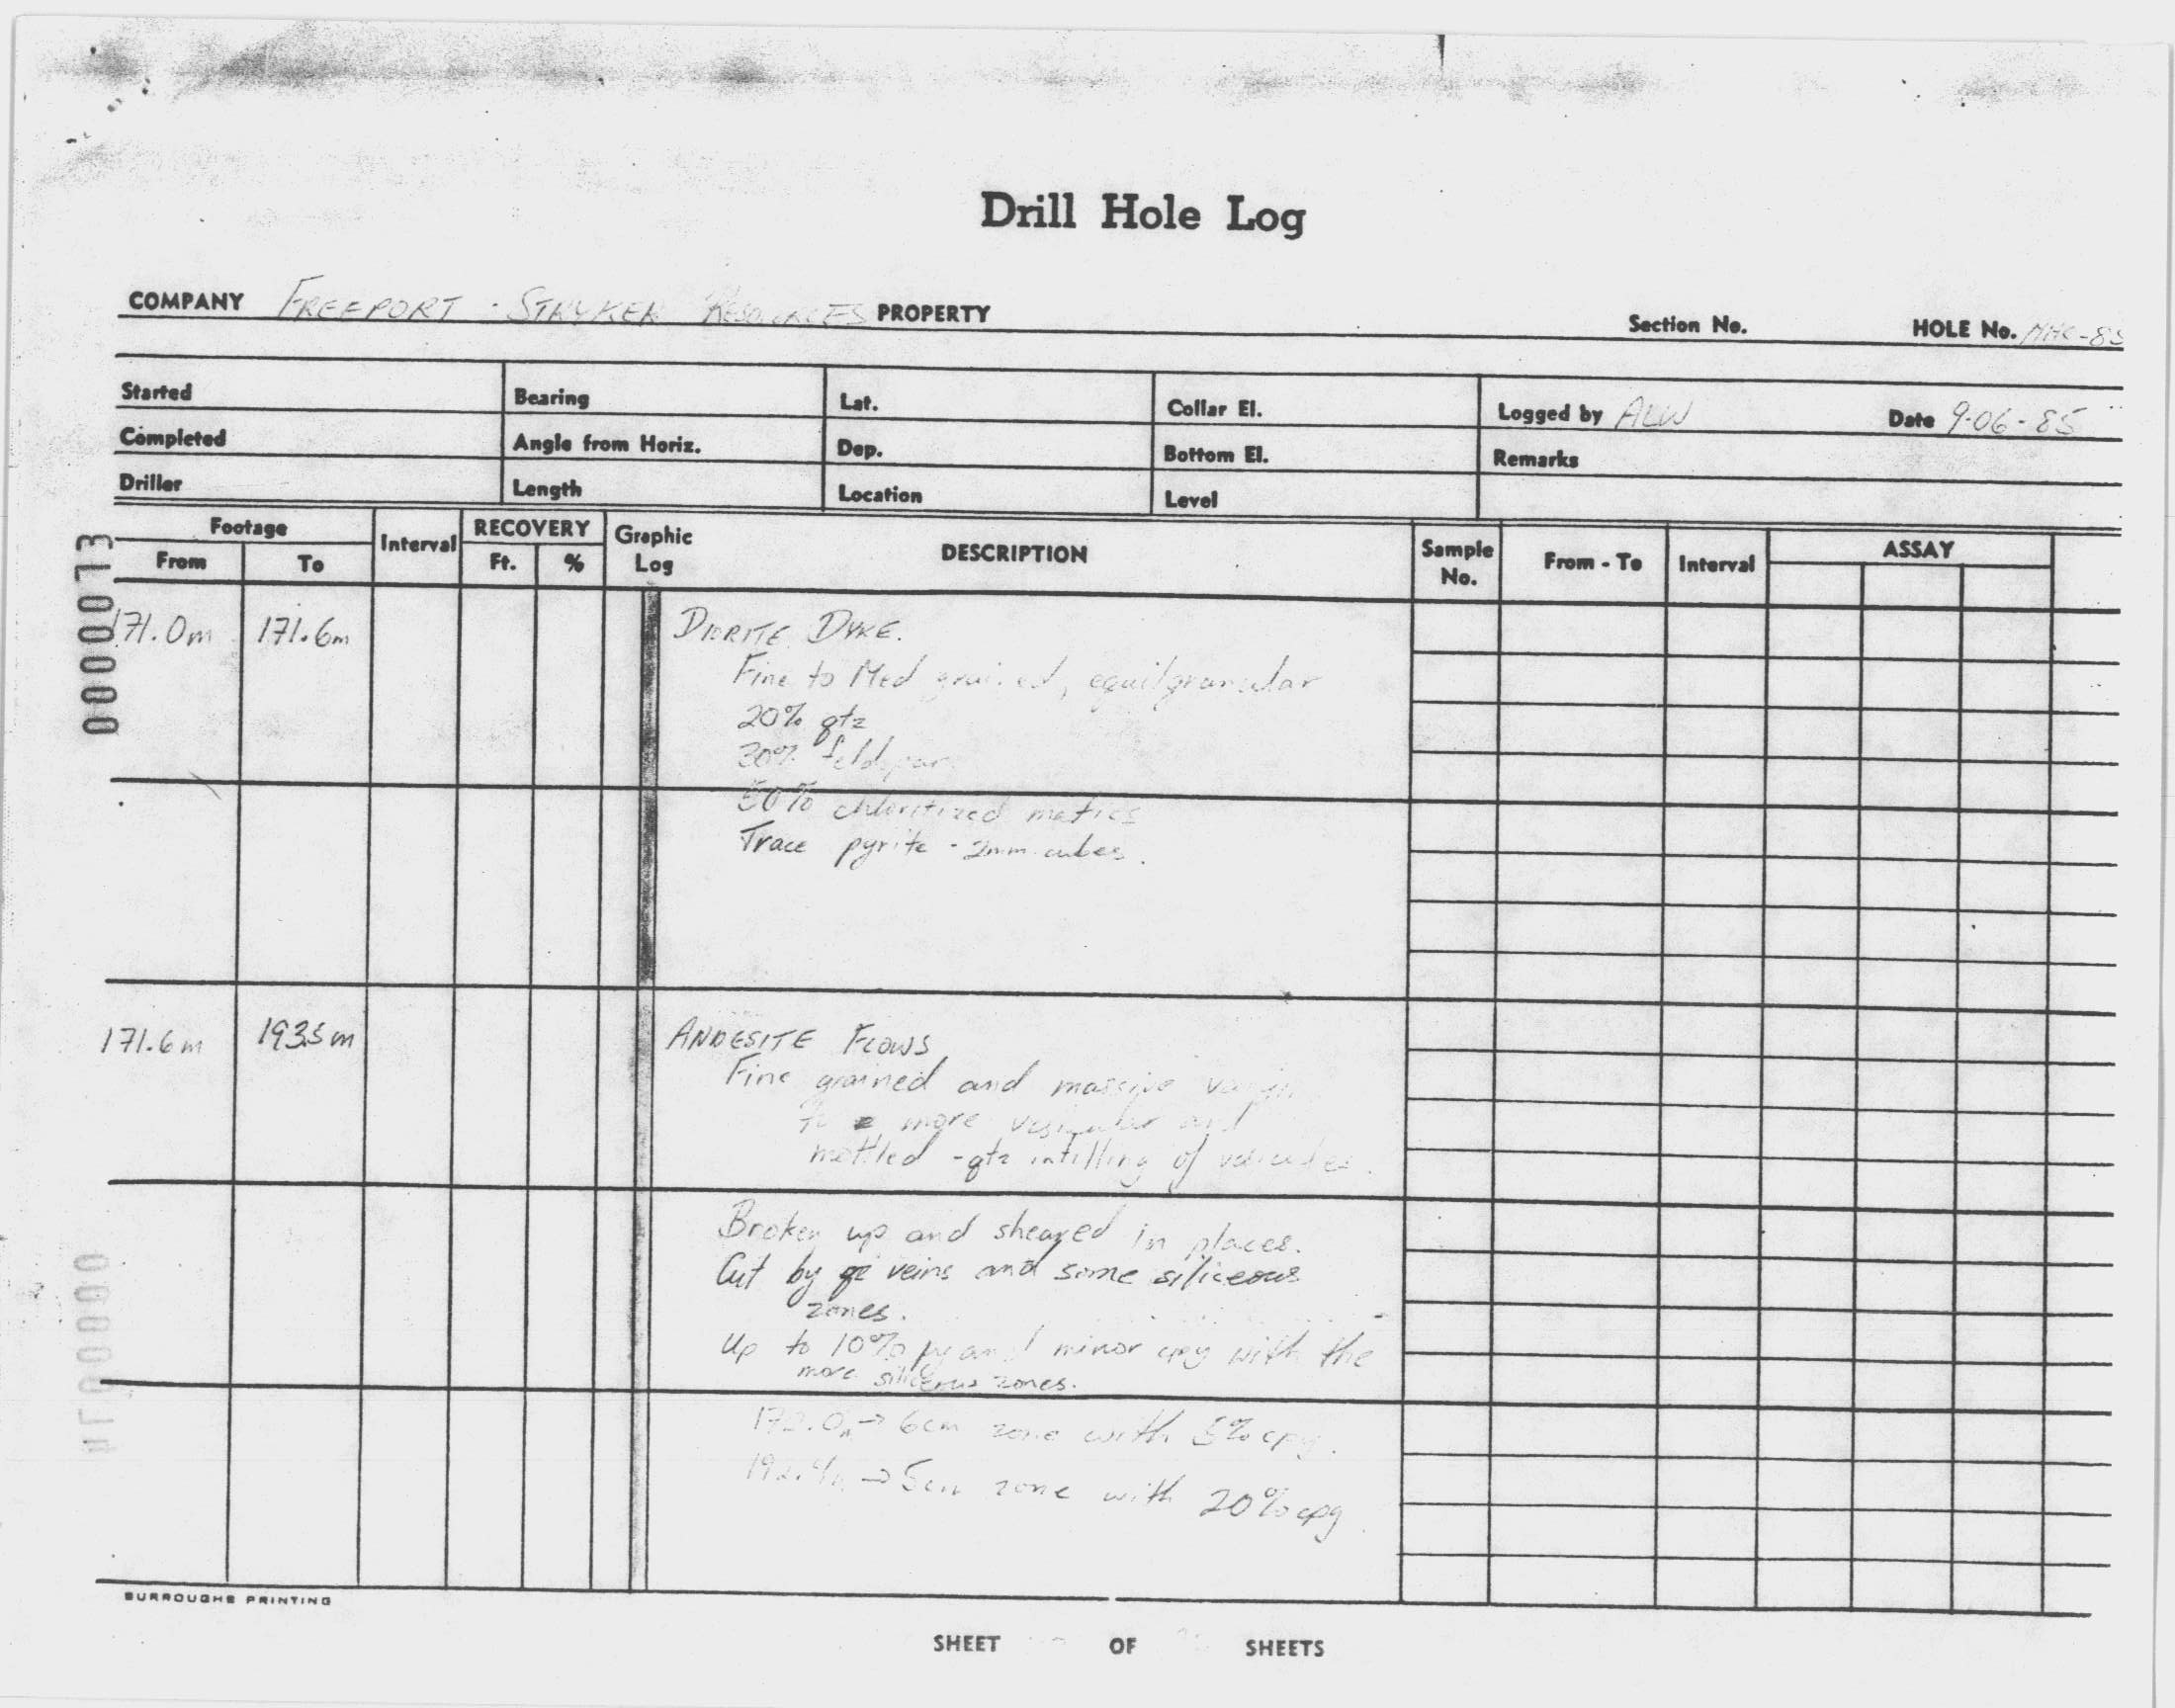 Drill Hole Log
COMPANY FREEPORT - STRYKER RESOURCES PROPERTY Section No. HOLE No.
Started Bearing Lat. Collar El. Logged by ALW Date 9-06-85
Completed Angle from Horiz. Dep. Bottom El. Remarks
Driller Length Location Level
Footage Interval RECOVERY Graphic Log DESCRIPTION Sample No. From - To Interval ASSAY
From To Ft. %
0000013
171.0m 171.6m DIORITE DYKE.
Fine to Med grained, equilgranular
20% qtz
30% feldspar
50% chloritized mafics
Trace pyrite - 2mm cubes.
171.6m 193.5m ANDESITE FLOWS
Fine grained and massive
to a more vesicular and
mottled - qtz infilling of vesicules.
Broken up and sheared in places.
Cut by veins and some siliceous
zones.
Up to 10% py and minor cpy with the
more siliceous zones.
172.0m → 6cm zone with 5% cpy.
→ 5cm zone with 20% cpy.
BURROUGHS PRINTING
SHEET OF SHEETS